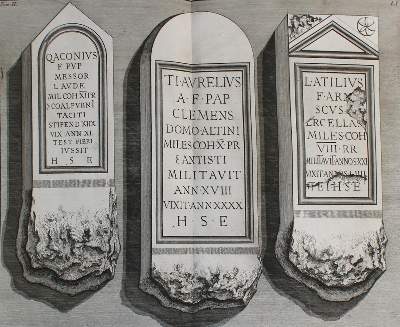 Q ACONIVS
F. PVP
MESSOR
LAVDE
MIL COH XI PR
TACITI
VIX ANN XL
TEST FIERI
IVSSIT
H S E
TI. AVRELIVS
A. F. PAP
CLEMENS
DOMO ALTINI
MILES COH X PR
ANTISTI
MILITAVIT
ANN XVIII
VIXIT ANN XXXX
H. S. E
L. ATILIVS
F. ARN
SCVS
MILES COH
VIII. RR
MILITAVIT ANNOS XXI